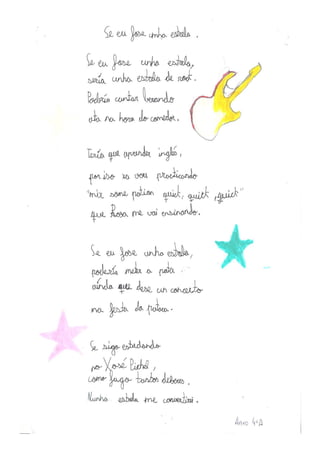 Se eu fose unha estrela.
Se eu fose unha estrela,
sería unha estrela de rock.
Podería cantar berrando
ata na hora do comedor.
Tería que aprender inglés,
por iso xa vou practicando
"mix some potion quick, quick, quick"
que Rosa me vai ensinando.
Se eu fose unha estrela,
podería meter a pata
aínda que dese un concerto
na festa da pataca.
Se sigo estudando
no Xosé Pichel,
como fago tantos deberes,
Nunha estrela me convertirei.
4ºA